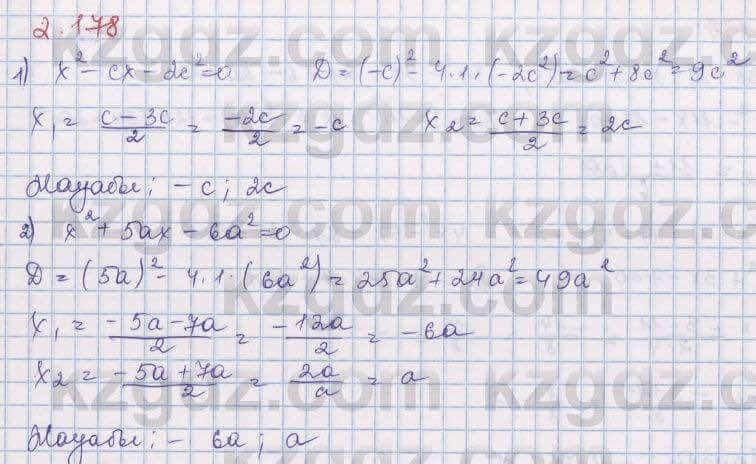 2.178
1) x² - cx - 2c² = 0 D = (-c)² - 4·1·(-2c²) = c² + 8c² = 9c²
x₁ = (c - 3c)/2 = (-2c)/2 = -c x₂ = (c + 3c)/2 = 2c
Жауабы: -c; 2c
2) x² + 5ax - 6a² = 0
D = (5a)² - 4·1·(6a²) = 25a² + 24a² = 49a²
x₁ = (-5a - 7a)/2 = (-12a)/2 = -6a
x₂ = (-5a + 7a)/2 = 2a/a = a
Жауабы: - 6a; a
kzgdz.com kzgdz.com
kzgdz.com kzgdz.com
kzgdz.com kzgdz.com
kzgdz.com kzgdz.com
kzgdz.com kzgdz.com